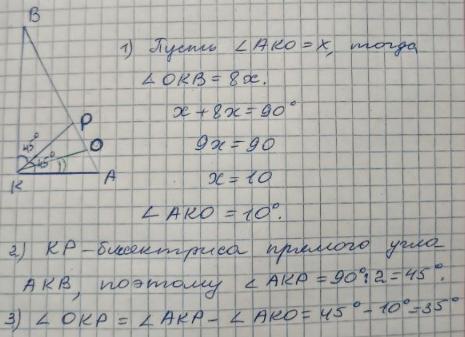 B
1) Пусть ∠AKO = x, тогда
∠OKB = 8x.
x + 8x = 90°
9x = 90
x = 10
∠AKO = 10°.
P
O
45°
45°
K
A
2) KP - биссектриса прямого угла
AKB, поэтому ∠AKP = 90° : 2 = 45°.
3) ∠OKP = ∠AKP - ∠AKO = 45° - 10° = 35°